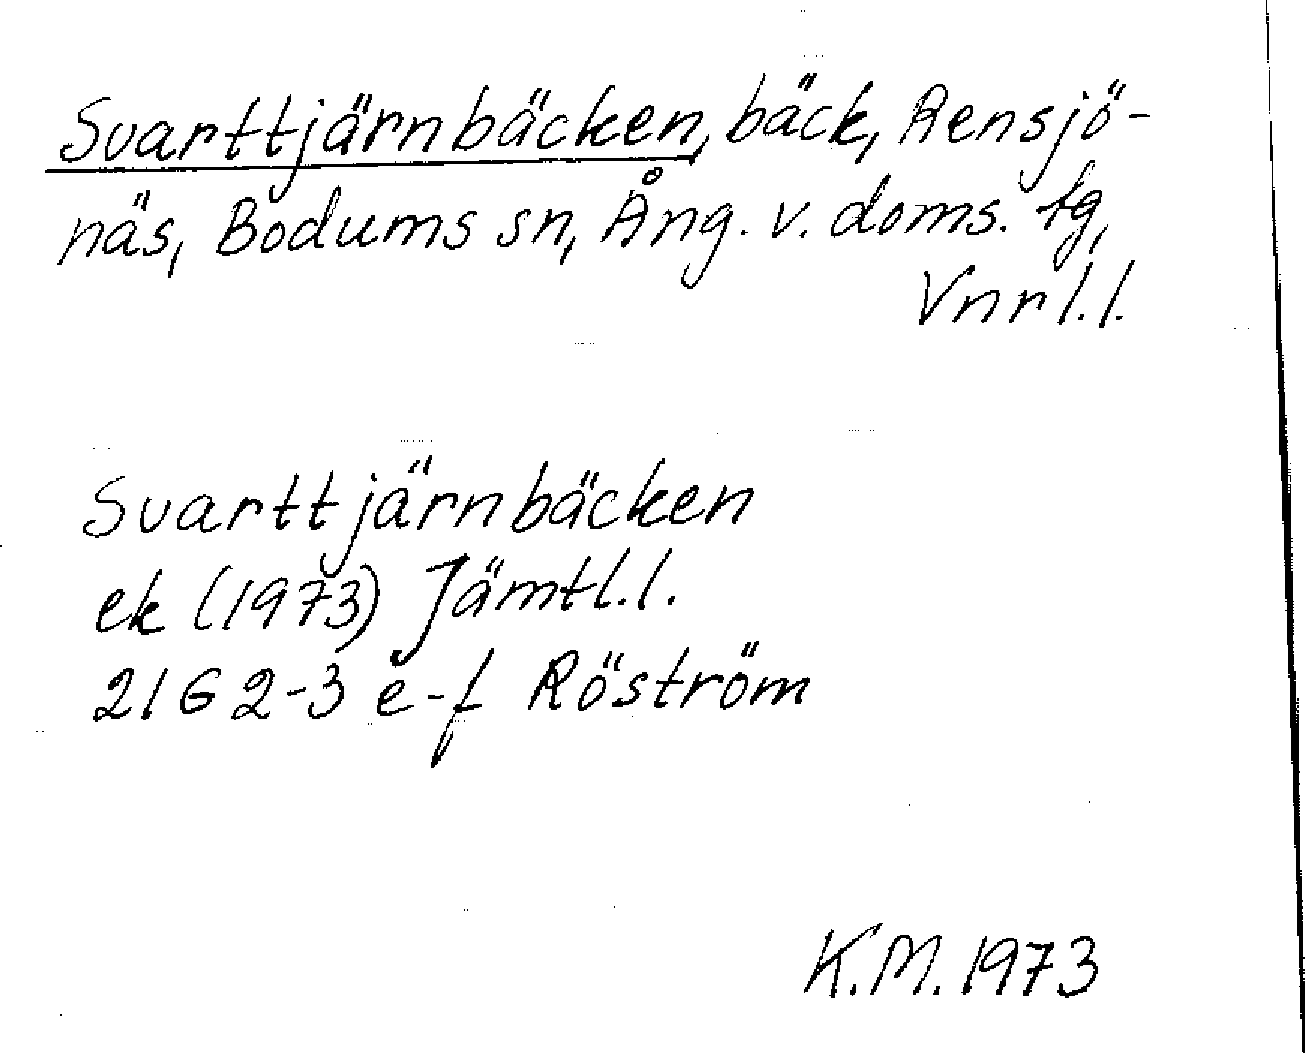 Svarttjärnbäcken, bäck, Rensjö-
näs, Bodums sn, Ång. v. doms. tg,
Vnrl.l.
Svarttjärnbäcken
ek (1973) Jämtl.l.
21G 2-3 e-f Röström
K.M. 1973